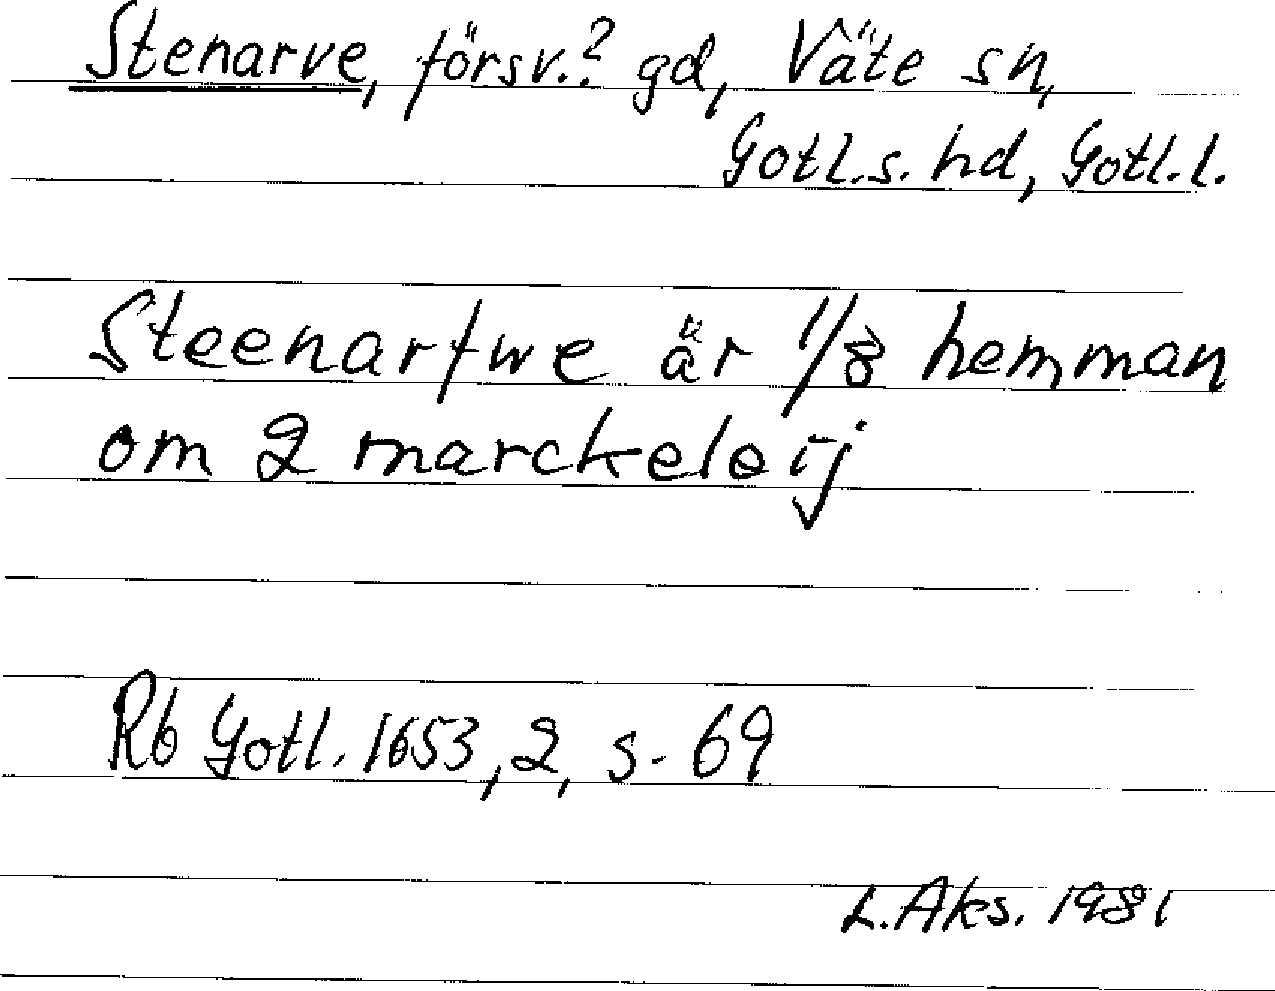 Stenarve, försv.? gd, Väte sn,
Gotl.s. hd, Gotl.l.
Steenarfwe är 1/8 hemman
om 2 marckeleij
Rb Gotl. 1653, 2, s. 69
L. Aks. 1981